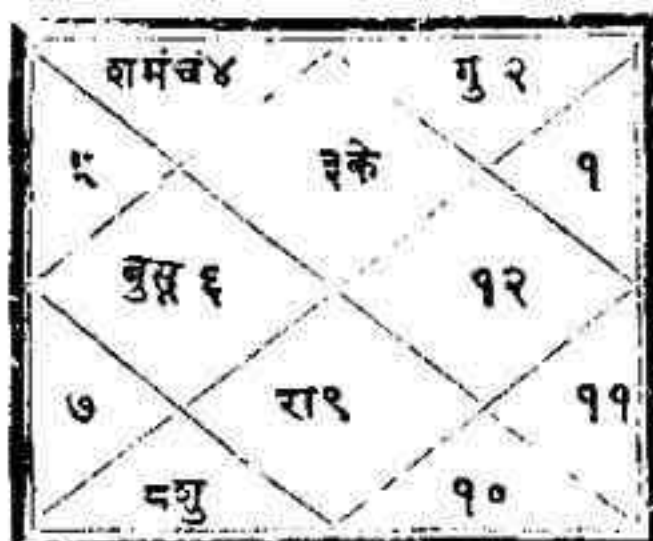 शमंचं४ गु २
३के १
बुसू ६ १२
७ रा९ ११
८शु १०